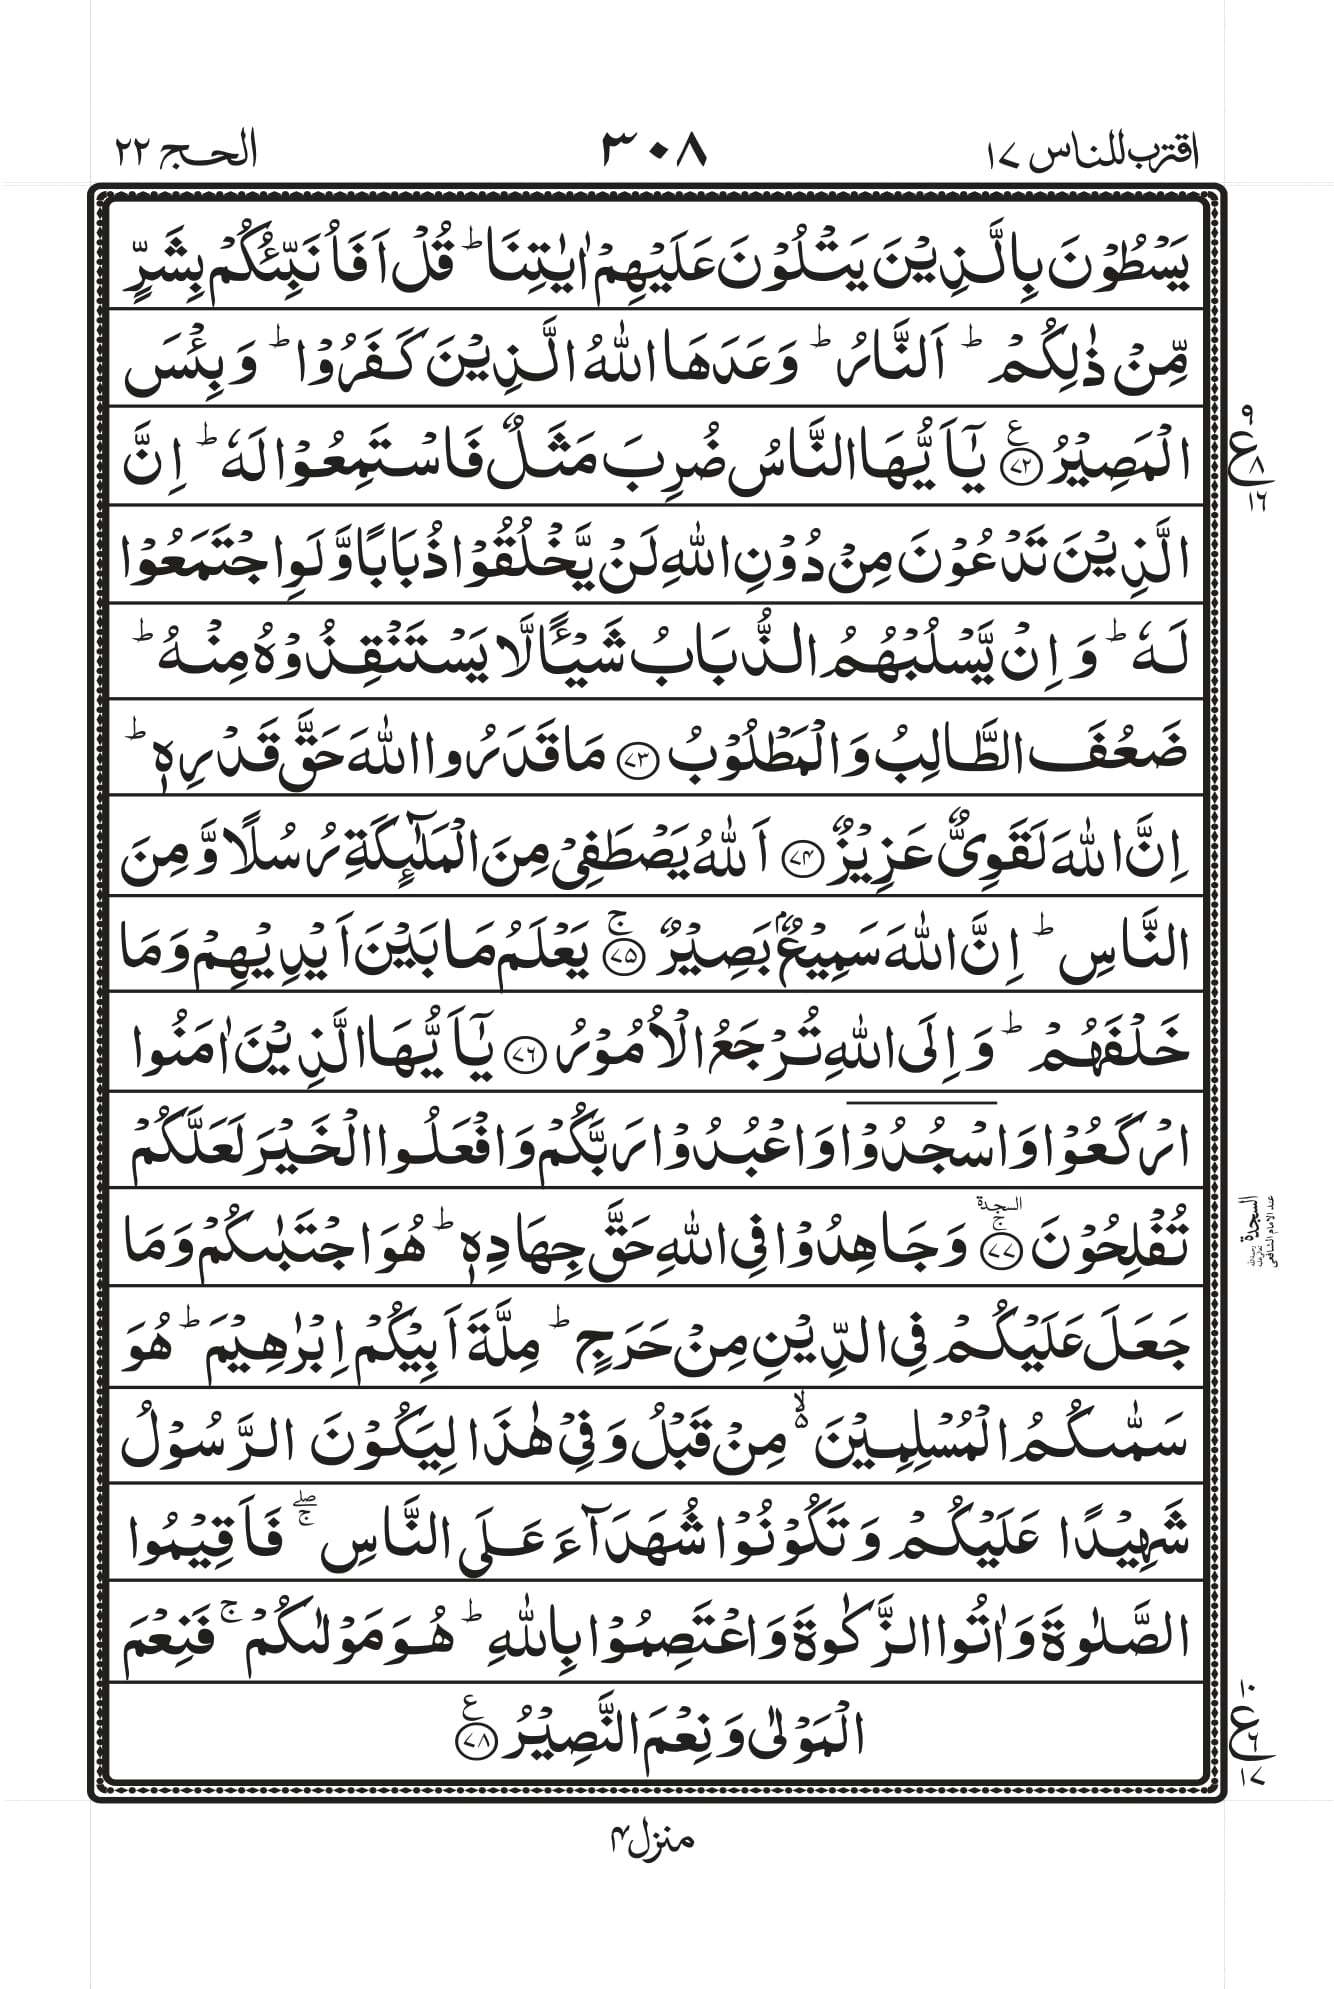 اقترب للناس ١٧
٣٠٨
الحج ٢٢
يَسْطُوْنَ بِالَّذِيْنَ يَتْلُوْنَ عَلَيْهِمْ اٰيٰتِنَا ؕ قُلْ اَفَاُنَبِّئُكُمْ بِشَرٍّ
مِّنْ ذٰلِكُمْ ؕ اَلنَّارُ ؕ وَعَدَهَا اللّٰهُ الَّذِيْنَ كَفَرُوْا ؕ وَبِئْسَ
الْمَصِيْرُ ﴿۷۲﴾ ع يٰۤاَيُّهَا النَّاسُ ضُرِبَ مَثَلٌ فَاسْتَمِعُوْا لَهٗ ؕ اِنَّ
الَّذِيْنَ تَدْعُوْنَ مِنْ دُوْنِ اللّٰهِ لَنْ يَّخْلُقُوْا ذُبَابًا وَّلَوِ اجْتَمَعُوْا
لَهٗ ؕ وَاِنْ يَّسْلُبْهُمُ الذُّبَابُ شَيْـًٔا لَّا يَسْتَنْقِذُوْهُ مِنْهُ ؕ
ضَعُفَ الطَّالِبُ وَالْمَطْلُوْبُ ﴿۷۳﴾ مَا قَدَرُوا اللّٰهَ حَقَّ قَدْرِهٖ ؕ
اِنَّ اللّٰهَ لَقَوِىٌّ عَزِيْزٌ ﴿۷۴﴾ اَللّٰهُ يَصْطَفِىْ مِنَ الْمَلٰٓئِكَةِ رُسُلًا وَّمِنَ
النَّاسِ ؕ اِنَّ اللّٰهَ سَمِيْعٌۢ بَصِيْرٌ ﴿۷۵﴾ ۚ يَعْلَمُ مَا بَيْنَ اَيْدِيْهِمْ وَمَا
خَلْفَهُمْ ؕ وَاِلَى اللّٰهِ تُرْجَعُ الْاُمُوْرُ ﴿۷۶﴾ يٰۤاَيُّهَا الَّذِيْنَ اٰمَنُوا
ارْكَعُوْا وَاسْجُدُوْا وَاعْبُدُوْا رَبَّكُمْ وَافْعَلُوا الْخَيْرَ لَعَلَّكُمْ
تُفْلِحُوْنَ ﴿۷۷﴾ ۚ السجدة وَجَاهِدُوْا فِى اللّٰهِ حَقَّ جِهَادِهٖ ؕ هُوَ اجْتَبٰٮكُمْ وَمَا
جَعَلَ عَلَيْكُمْ فِى الدِّيْنِ مِنْ حَرَجٍ ؕ مِلَّةَ اَبِيْكُمْ اِبْرٰهِيْمَ ؕ هُوَ
سَمّٰٮكُمُ الْمُسْلِمِيْنَ ۙ۬ مِنْ قَبْلُ وَفِىْ هٰذَا لِيَكُوْنَ الرَّسُوْلُ
شَهِيْدًا عَلَيْكُمْ وَتَكُوْنُوْا شُهَدَآءَ عَلَى النَّاسِ ۖۚ فَاَقِيْمُوا
الصَّلٰوةَ وَاٰتُوا الزَّكٰوةَ وَاعْتَصِمُوْا بِاللّٰهِ ؕ هُوَ مَوْلٰٮكُمْ ۚ فَنِعْمَ
الْمَوْلٰى وَنِعْمَ النَّصِيْرُ ﴿۷۸﴾ ع
٩
ع ٨
١٦
السجدة
عند الامام الشافعي
١٠
ع ٦
١٧
منزل ۴